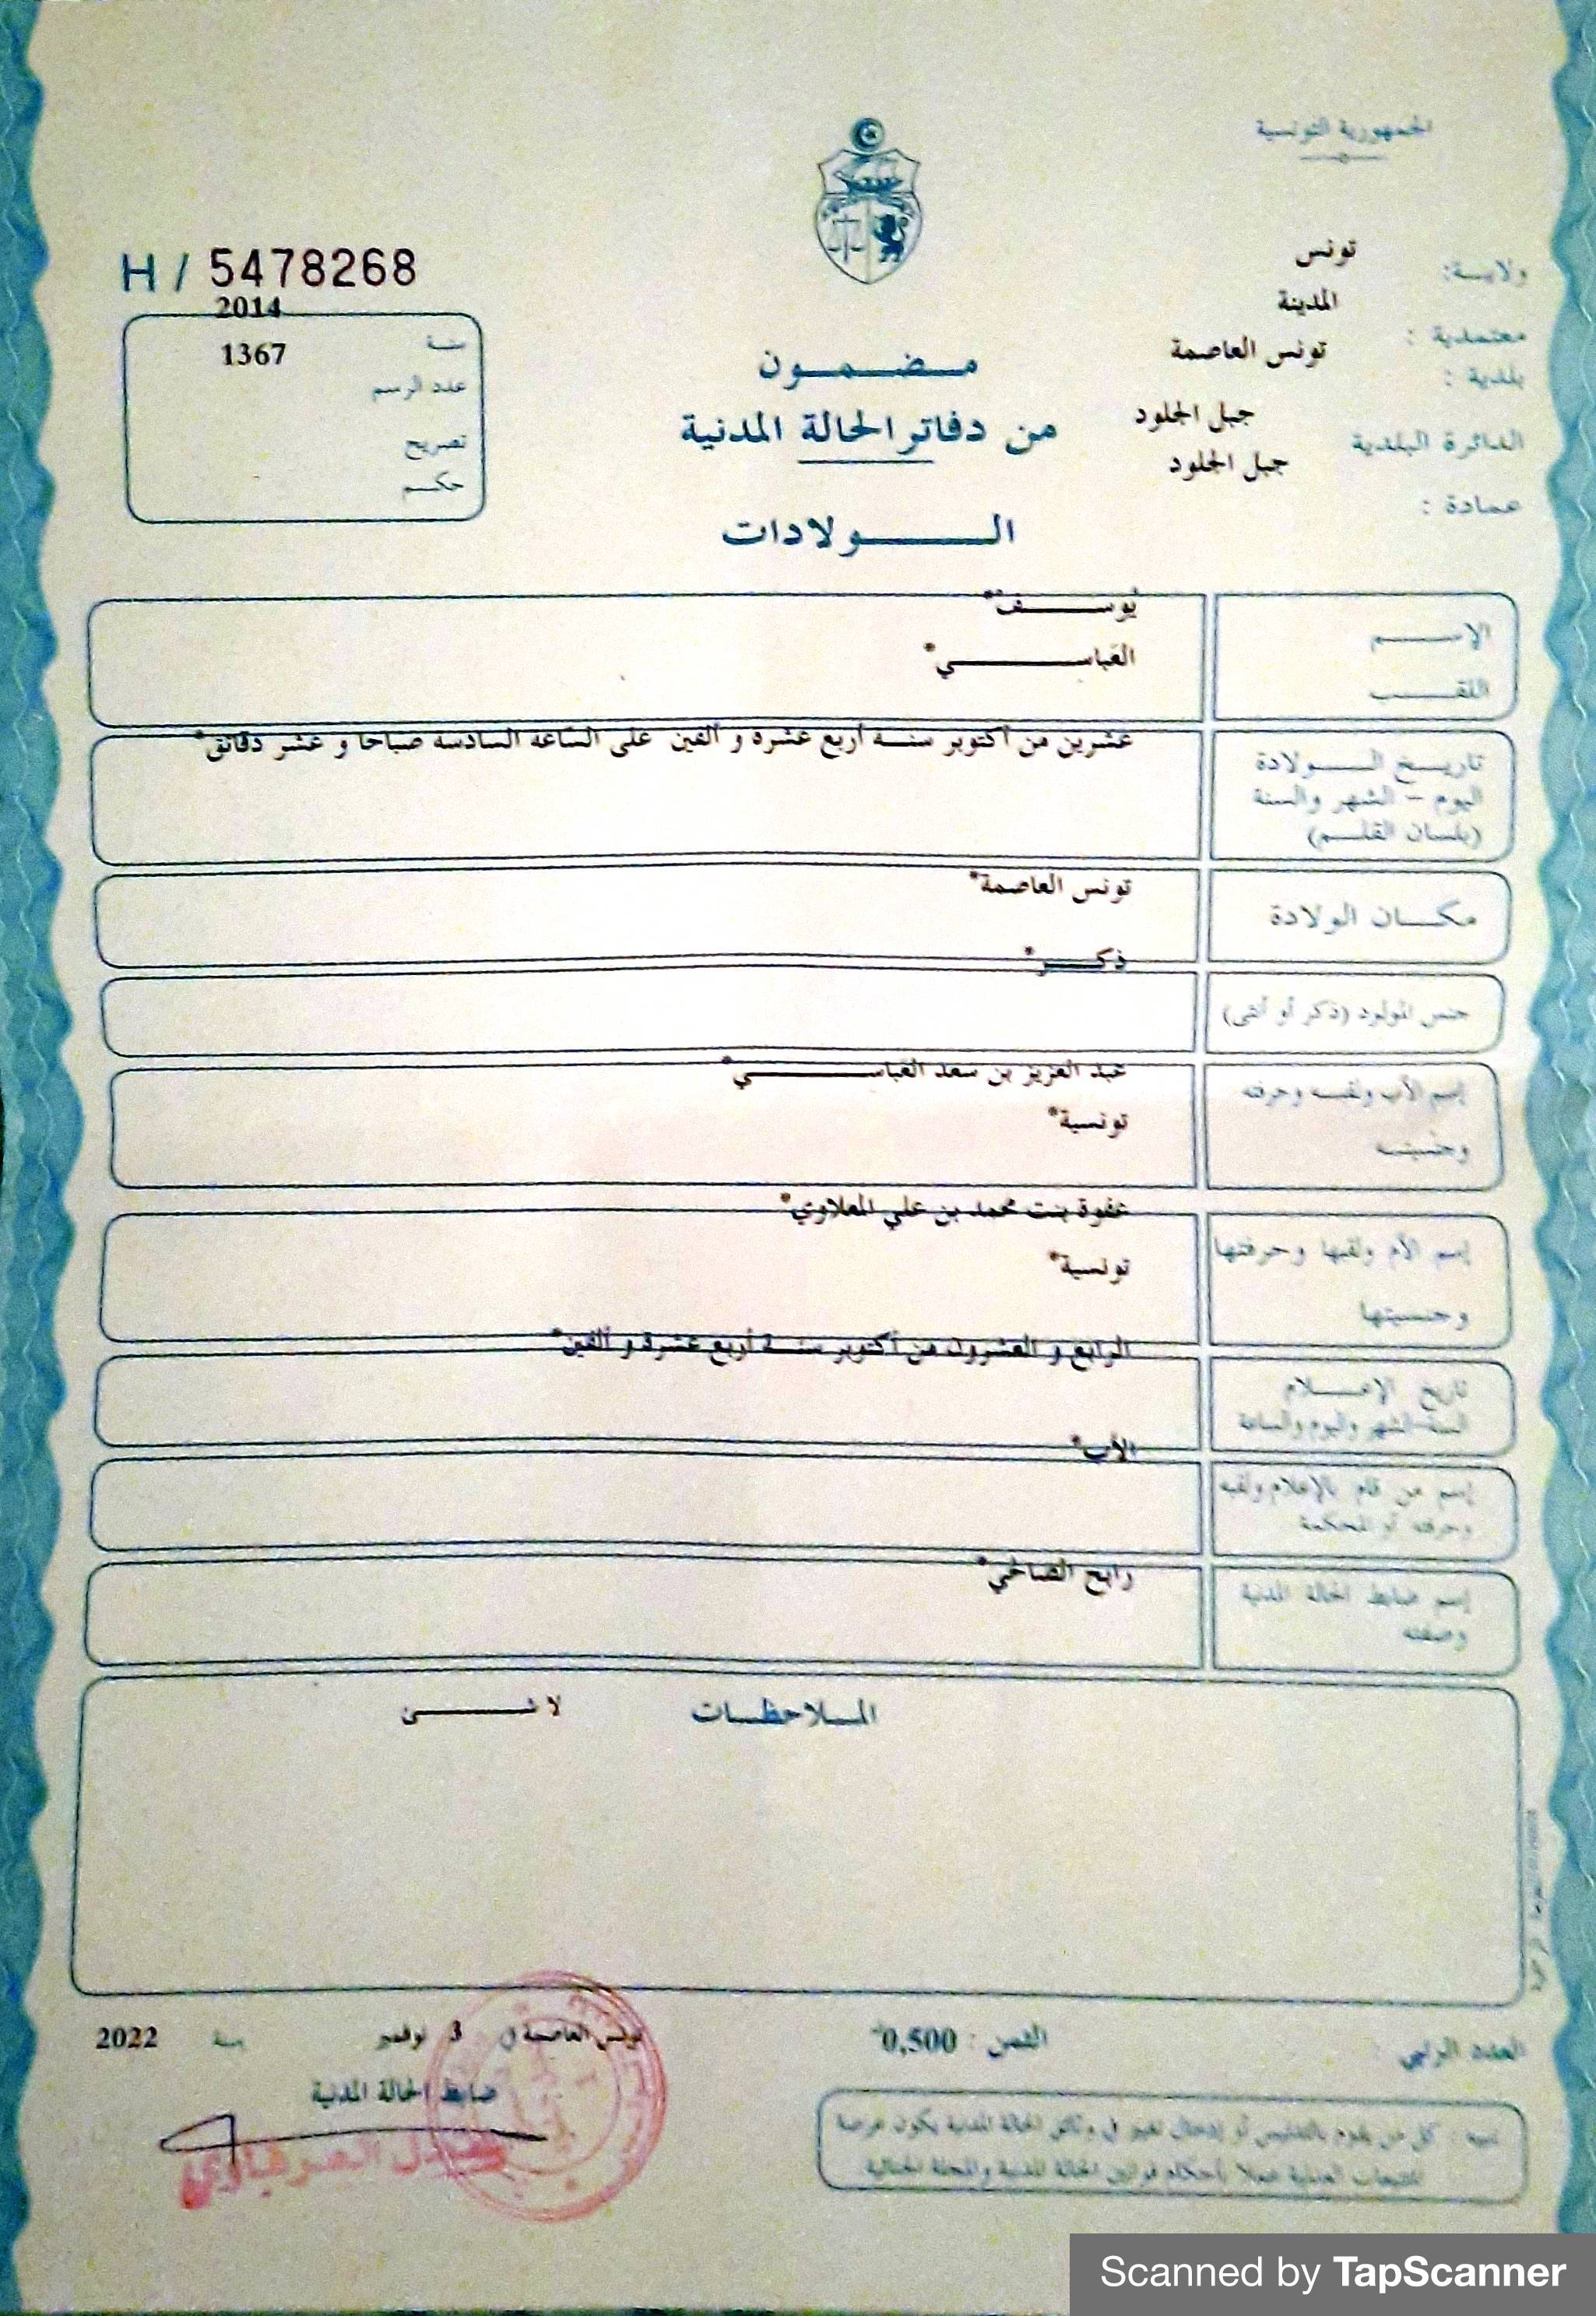 الجمهورية التونسية
ولايـــة: تونس
معتمدية : المدينة
بلدية : تونس العاصمة
الدائرة البلدية جبل الجلود
عمادة : جبل الجلود
H / 5478268
سنـة 2014
عدد الرسم 1367
تصريح
حكـم
مـضـمـون
من دفاتر الحالة المدنية
الـولادات
الإســم يوسـف*
اللقـب العباسـي*
تاريـخ الــولادة
اليوم - الشهر والسنة
(بلسان القلـم)
عشرين من أكتوبر سنـة أربع عشرة و ألفين على الساعة السادسة صباحا و عشر دقائق*
مكـان الولادة تونس العاصمة*
جنس المولود (ذكر أو أنثى) ذكـر*
إسم الأب ولقبـه وحرفته عبد العزيز بن سعد العباسـي*
وجنسيتـه تونسية*
إسم الأم ولقبها وحرفتها عفوة بنت محمد بن علي المعلاوي*
وجنسيتها تونسية*
تاريخ الإعـلام
السنة-الشهر واليوم والساعة
الرابع و العشرون من أكتوبر سنـة أربع عشرة و ألفين*
إسم من قام بالإعلام ولقبه
وحرفته أو المحكمة
الأب*
إسم ضابط الحالة المدنية
وصفته
رابح الصالحي*
المـلاحظـات لا شـىء
العدد الرتبي :
الثمن : 0,500
تونس العاصمة في 3 نوفمبر سنة 2022
ضابط الحالة المدنية
تنبيه : كل من يقوم بالتدليس أو إدخال تغيير في وثائق الحالة المدنية يكون عرضة
للتتبعات العدلية عملا بأحكام قوانين الحالة المدنية والمجلة الجنائية
Scanned by TapScanner